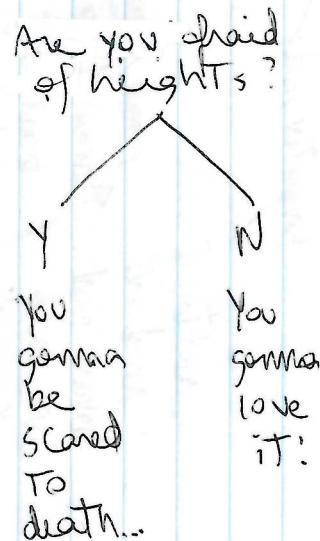 Are you afraid
of heights?
Y
N
You
gonna
be
scared
To
death...
You
gonna
love
it!